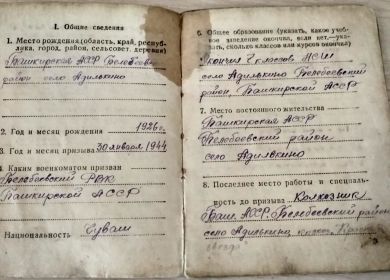 I. Общие сведения
1. Место рождения (область, край, респуб-
лика, город, район, сельсовет, деревня)
Башкирская АССР Белебеевс
район село Адилькино
2. Год и месяц рождения 1926 г.
3. Год и месяц призыва 30 января 1944
4. Каким военкоматом призван
Белебеевский РВК
Башкирской АССР
Национальность Чуваш
6. Общее образование (указать, какое учеб-
ное заведение окончил, если нет,—ука-
зать, сколько классов или курсов окончил)
Окончил 7 классов НСШ
село Адилькино Белебеевский
район Башкирской АССР
7. Место постоянного жительства
Башкирская АССР
Белебеевский район
село Адилькино
8. Последнее место работы и специаль-
ность до призыва Колхозник
Баш. АССР. Белебеевский район
село Адилькино колхоз
звезда